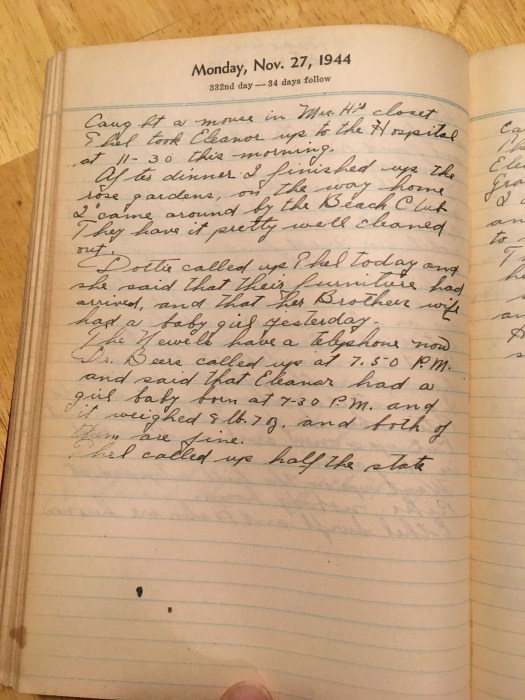 Monday, Nov. 27, 1944
332nd day — 34 days follow
Caught a mouse in Mrs. H's closet
Ethel took Eleanor up to the Hospital
at 11-30 this morning.
After dinner I finished up the
rose gardens, on the way home
I came around by the Beach Club
They have it pretty well cleaned
out.
Dottie called up Ethel today and
she said that their furniture had
arrived, and that her Brothers wife
had a baby girl yesterday.
The Newells have a telephone now
Dr. Beers called up at 7.50 P.M.
and said that Eleanor had a
girl baby born at 7-30 P.M. and
it weighed 8 lb. 7 oz. and both of
them are fine.
Ethel called up half the state